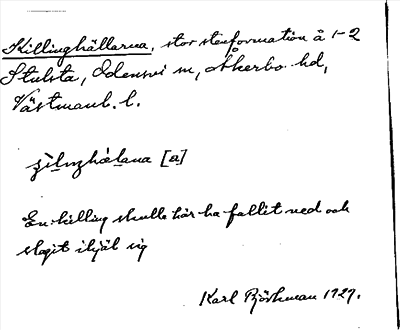 Killinghällarna, stor stenformation å 1-2
Stulsta, Odensvi sn, Åkerbo hd,
Västmanl. l.
En killing skulle här ha fallit ned och
slagit ihjäl sig
Karl Björkman 1927.